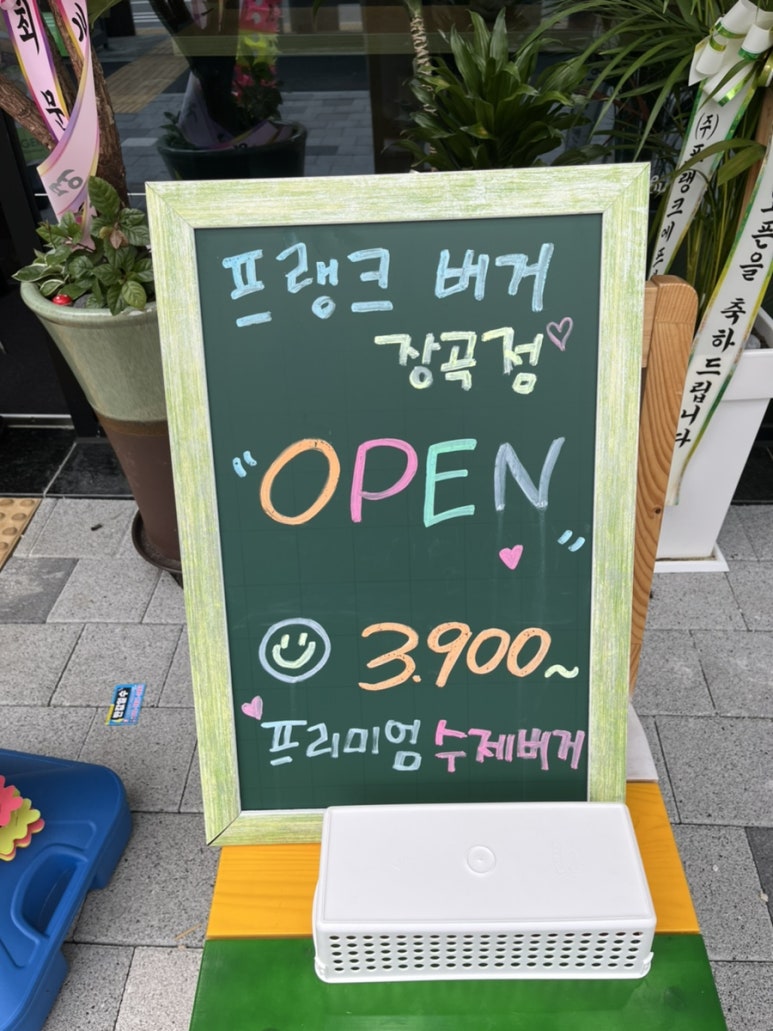 프랭크 버거
장곡점
"OPEN"
3.900~
프리미엄 수제버거
(주)프랭크에프
오픈을 축하드립니다